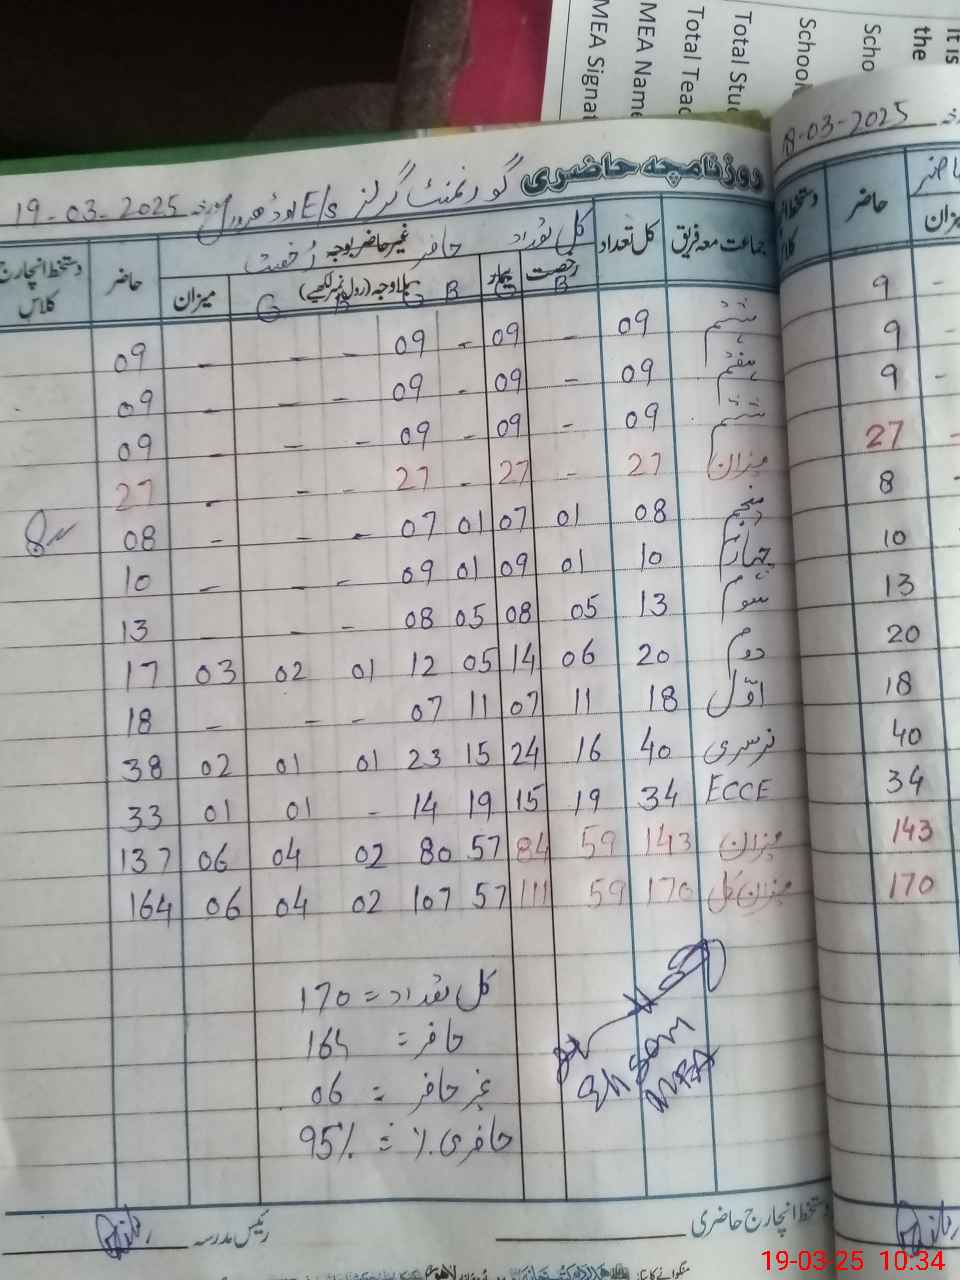 It is
the
Scho
School
Total Stud
Total Teac
MEA Name
MEA Signat
روزنامچہ حاضری گورنمنٹ گرلز E/s 19-03-2025
جماعت معہ فریق کل تعداد کل تعداد حاضر غیر حاضر بوجہ رخصت حاضر دستخط انچارج کلاس
رخصت B بیمار G بلاوجہ (رول نمبر لکھیے) B G B G میزان
ہشتم 09 - 09 - 09 - - - 09
ہفتم 09 - 09 - 09 - - - 09
ششم 09 - 09 - 09 - - - 09
میزان 27 - 27 - 27 - - - 27
پنجم 08 01 07 01 07 - - - 08
چہارم 10 01 09 01 09 - - - 10
سوم 13 05 08 05 08 - - - 13
دوم 20 06 14 05 12 01 02 03 17
اوّل 18 11 07 11 07 - - - 18
نرسری 40 16 24 15 23 01 01 02 38
ECCE 34 19 15 19 14 - 01 01 33
میزان 143 59 84 57 80 02 04 06 137
میزان کل 170 59 111 57 107 02 04 06 164
کل تعداد = 170
حاضر = 164
غیر حاضر = 06
حاضری % = 95%
Ehsan
MEA
دستخط انچارج حاضری
رئیس مدرسہ
-03-2025
حاضر
میزان
حاضر
9 -
9 -
9 -
27 -
8 -
10
13
20
18
40
34
143
170
19-03-25 10:34